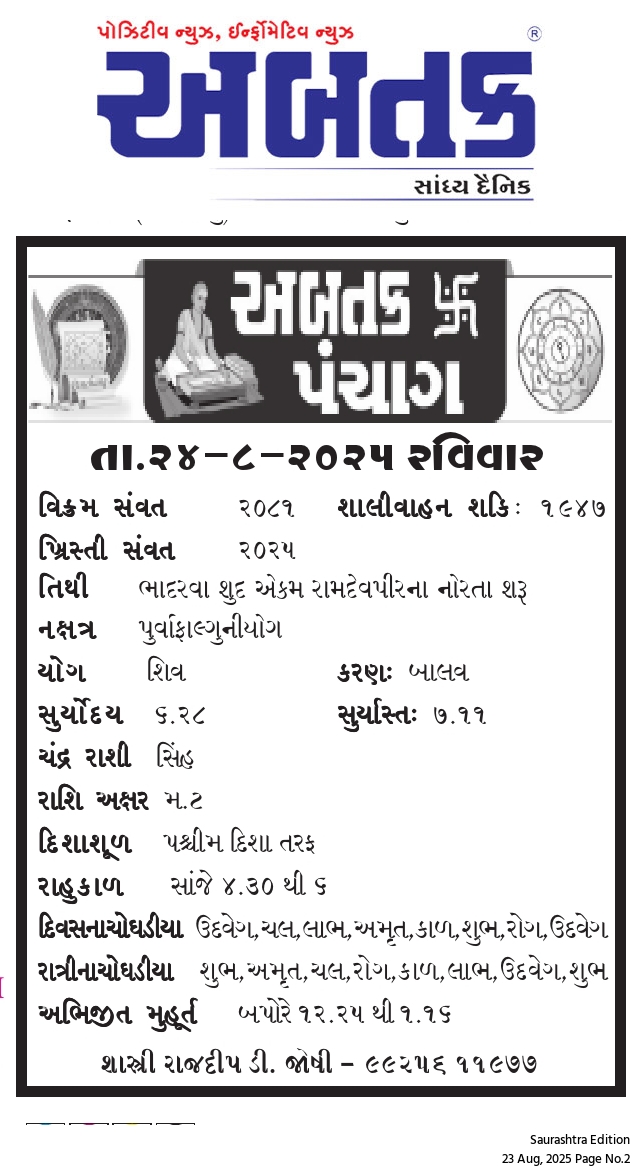 પોઝિટીવ ન્યુઝ, ઈન્ફોર્મેટિવ ન્યુઝ
®
અબતક
સાંધ્ય દૈનિક
અબતક 卐
પંચાગ
તા.૨૪-૮-૨૦૨૫ રવિવાર
વિક્રમ સંવત ૨૦૮૧ શાલીવાહન શકિ: ૧૯૪૭
ખ્રિસ્તી સંવત ૨૦૨૫
તિથી ભાદરવા શુદ એકમ રામદેવપીરના નોરતા શરૂ
નક્ષત્ર પુર્વાફાલ્ગુનીયોગ
યોગ શિવ કરણ: બાલવ
સુર્યોદય ૬.૨૮ સુર્યાસ્ત: ૭.૧૧
ચંદ્ર રાશી સિંહ
રાશિ અક્ષર મ.ટ
દિશાશૂળ પશ્ચીમ દિશા તરફ
રાહુકાળ સાંજે ૪.૩૦ થી ૬
દિવસનાચોઘડીયા ઉદવેગ,ચલ,લાભ,અમૃત,કાળ,શુભ,રોગ,ઉદવેગ
રાત્રીનાચોઘડીયા શુભ,અમૃત,ચલ,રોગ,કાળ,લાભ,ઉદવેગ,શુભ
અભિજીત મુહૂર્ત બપોરે ૧૨.૨૫ થી ૧.૧૬
શાસ્ત્રી રાજદીપ ડી. જોષી - ૯૯૨૫૬ ૧૧૯૭૭
Saurashtra Edition
23 Aug, 2025 Page No.2